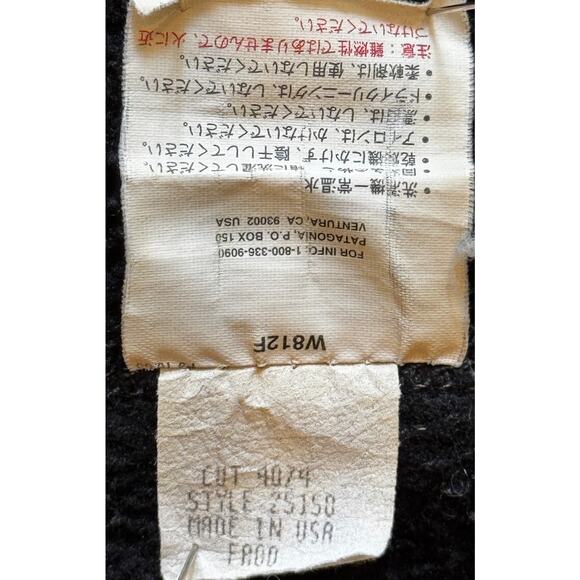 W812F
FOR INFO: 1-800-336-9090
PATAGONIA, P.O. BOX 150
VENTURA, CA 93002 USA
• 洗濯機ー常温水
• 乾燥機にかけず、陰干ししてください。
• アイロンは、かけないでください。
• 漂白は、しないでください。
• ドライクリーニングは、しないでください。
• 柔軟剤は、使用しないでください。
注意：難燃性ではありませんので、火に近
づけないでください。
CUT 4074
STYLE 25150
MADE IN USA